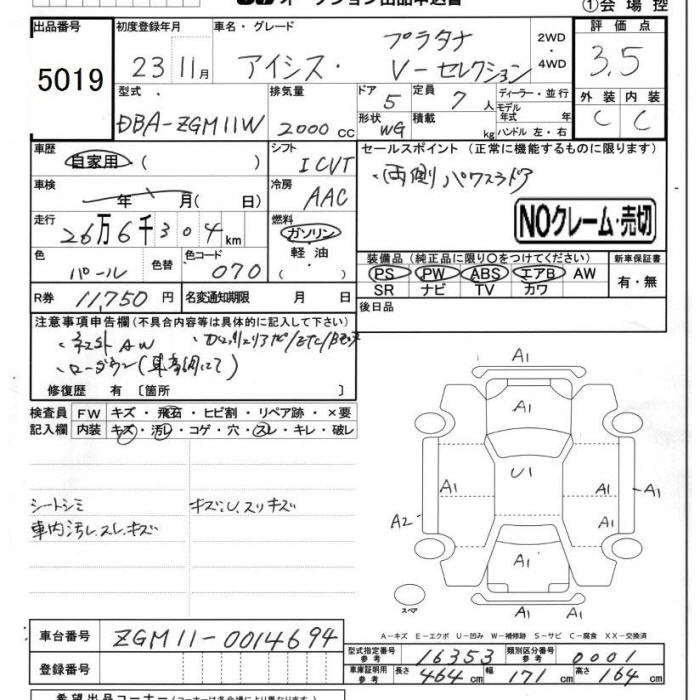 オークション出品申込書
①会場控
出品番号 5019
初度登録年月 23 11月
車名・グレード アイシス・プラタナ V-セレクション
2WD・4WD
評価点 3.5
型式 DBA-ZGM11W
排気量 2000 cc
ドア 5
定員 7 人
形状 WG
積載 kg
ディーラー・並行
モデル年式 年
ハンドル 左・右
外装 C 内装 C
車歴 自家用 ( )
シフト ICVT
車検 年 月( 日)
冷房 AAC
走行 26万6千304km
燃料 ガソリン・軽油・( )
色 パール 色替 色コード 070
R券 11,750円 名変通知期限 月 日
セールスポイント (正常に機能するものに限ります)
・両側パワスラドア
NOクレーム・売切
装備品 (純正品に限り〇をつけてください)
PS PW ABS エアB AW
SR ナビ TV カワ
新車保証書 有・無
後日品
注意事項申告欄 (不具合内容等は具体的に記入して下さい)
・ネジ外AW
・ローダウン(車高調にて)
修復歴 有 〔箇所 〕
検査員記入欄
FW キズ・飛石・ヒビ割・リペア跡・×要
内装 キズ・汚レ・コゲ・穴・スレ・キレ・破レ
シートシミ
車内汚レ、スレ、キズ
キズ、U、スリキズ
A1
A1
U1
A1 A1 A1
A2 A1
A1
A1
スペア
A-キズ E-エクボ U-凹み W-補修跡 S-サビ C-腐食 XX-交換済
車台番号 ZGM11-0014694
登録番号
型式指定番号 参考 16353 類別区分番号 参考 0001
車庫証明用 参考 長さ 464cm 幅 171cm 高さ 164cm
希望出品コーナー (コーナーは各会場により異なります)